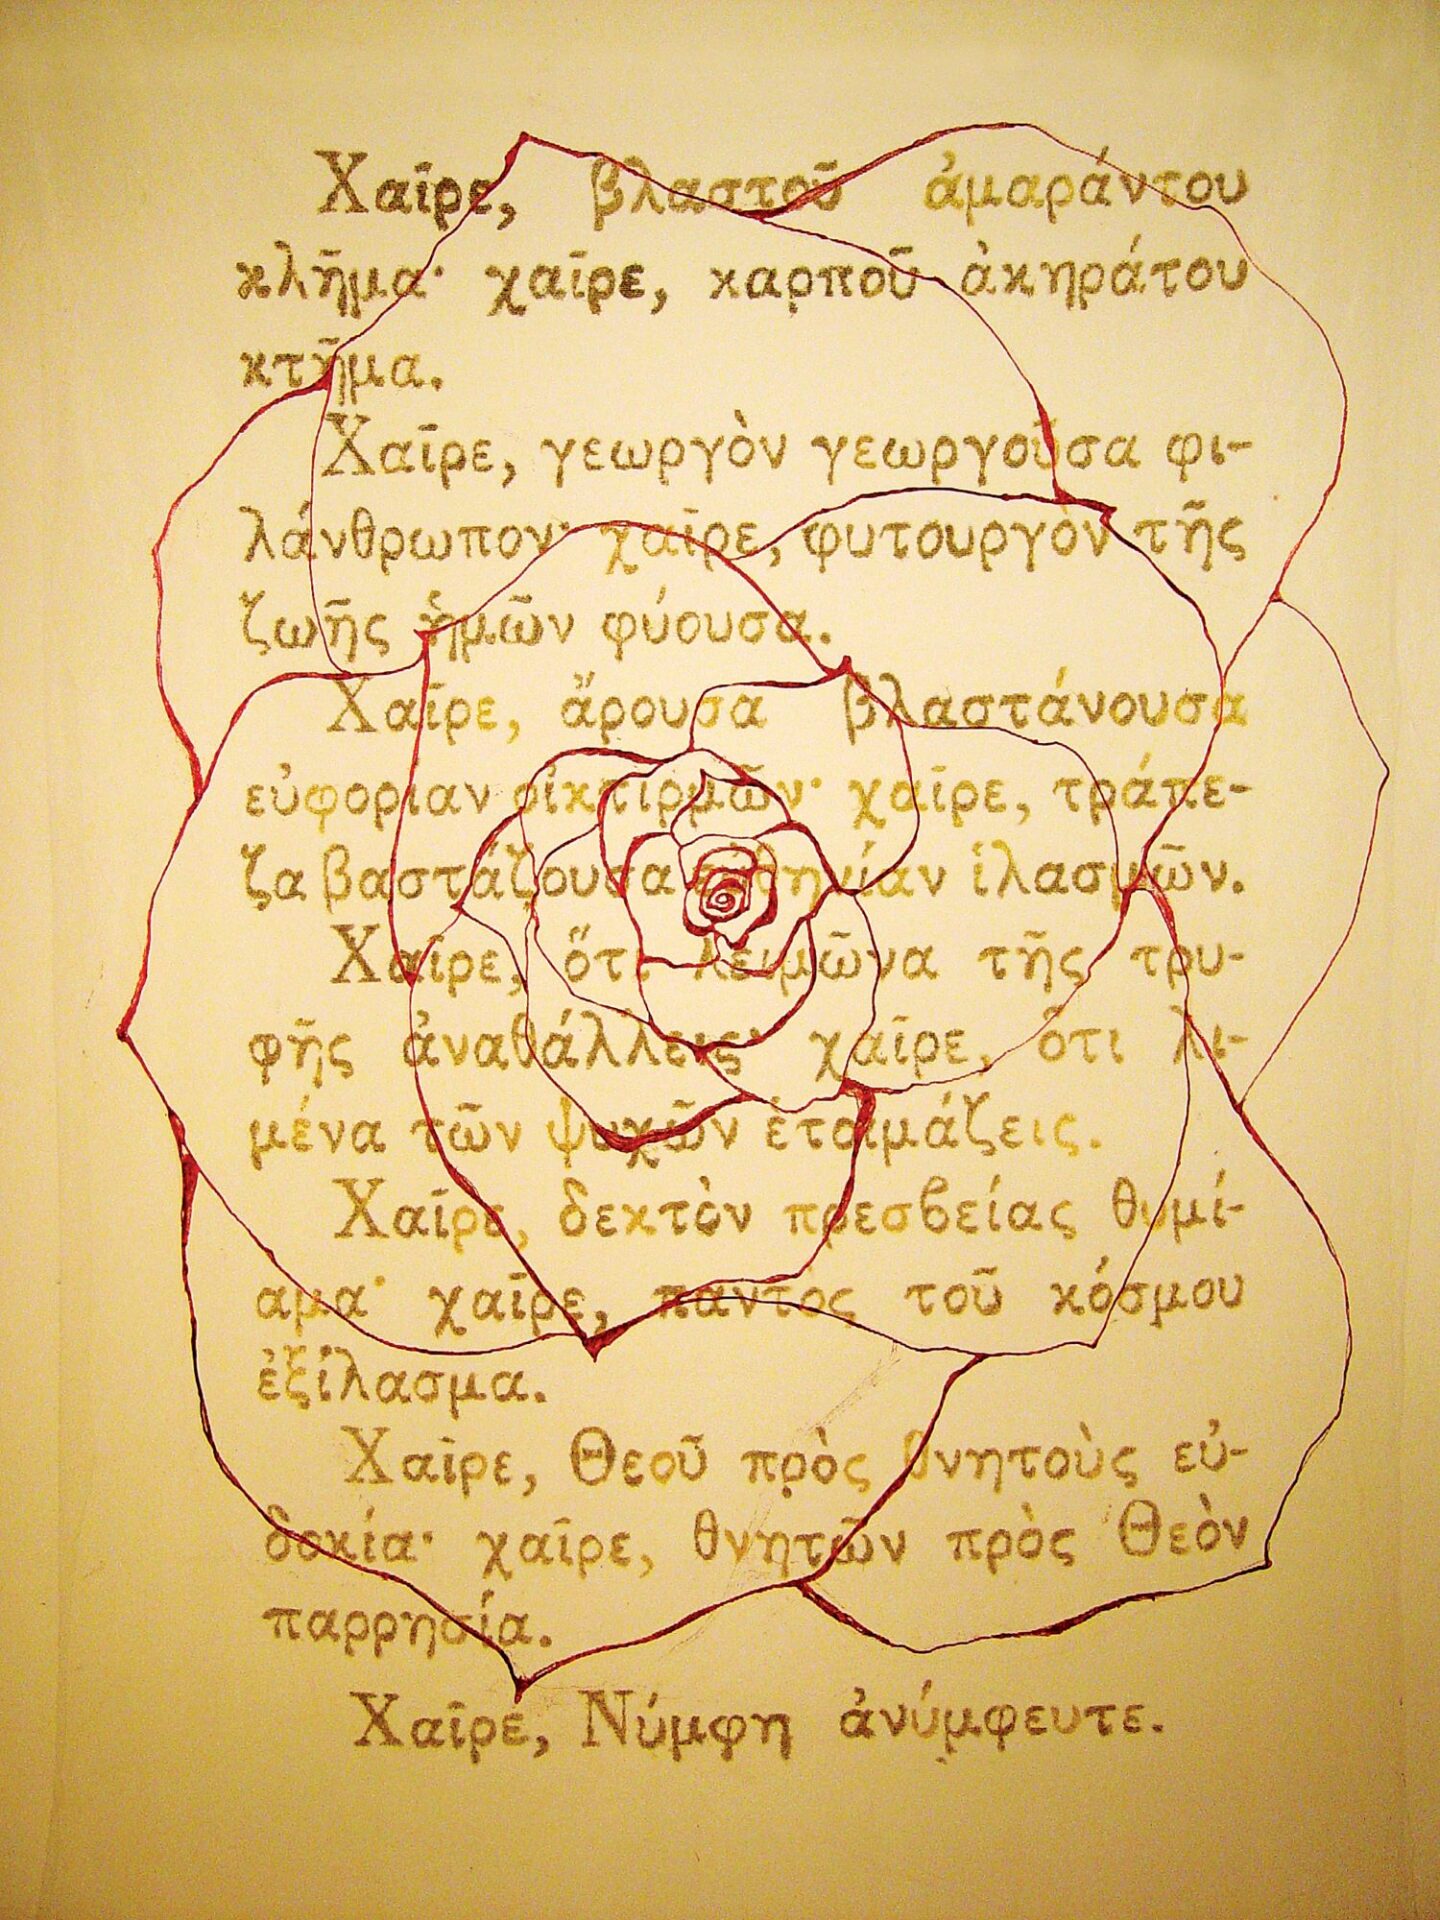 Χαῖρε, βλαστοῦ ἀμαράντου
κλῆμα· χαῖρε, καρποῦ ἀκηράτου
κτῆμα.
Χαῖρε, γεωργὸν γεωργοῦσα φι-
λάνθρωπον· χαῖρε, φυτουργὸν τῆς
ζωῆς ἡμῶν φύουσα.
Χαῖρε, ἄρουσα βλαστάνουσα
εὐφορίαν οἰκτιρμῶν· χαῖρε, τράπε-
ζα βαστάζουσα εὐθηνίαν ἱλασμῶν.
Χαῖρε, ὅτι λειμῶνα τῆς τρυ-
φῆς ἀναθάλλεις· χαῖρε, ὅτι λι-
μένα τῶν ψυχῶν ἑτοιμάζεις.
Χαῖρε, δεκτὸν πρεσβείας θυμί-
αμα· χαῖρε, παντος τοῦ κόσμου
ἐξίλασμα.
Χαῖρε, Θεοῦ πρὸς θνητοὺς εὐ-
δοκία· χαῖρε, θνητῶν πρὸς Θεὸν
παρρησία.
Χαῖρε, Νύμφη ἀνύμφευτε.